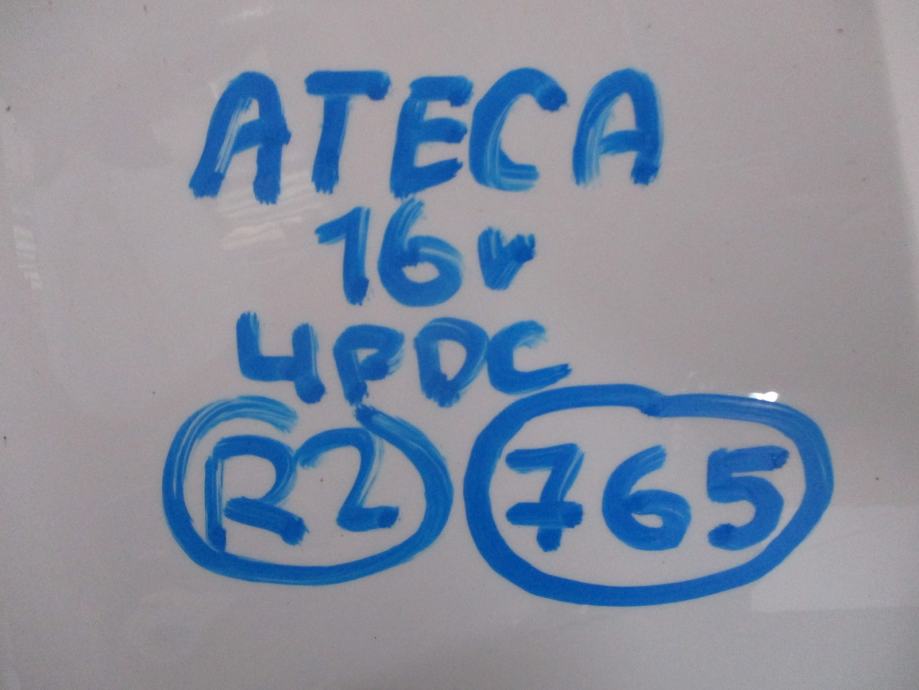 ATECA
16v
4PDC
R2 765